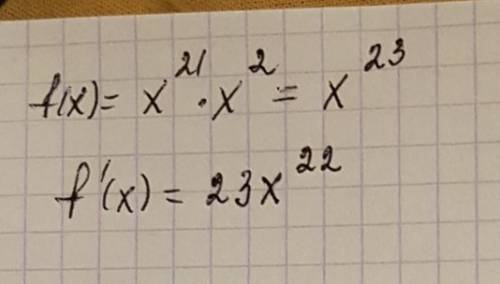 f(x) = x^21 · x^2 = x^23
f'(x) = 23x^22